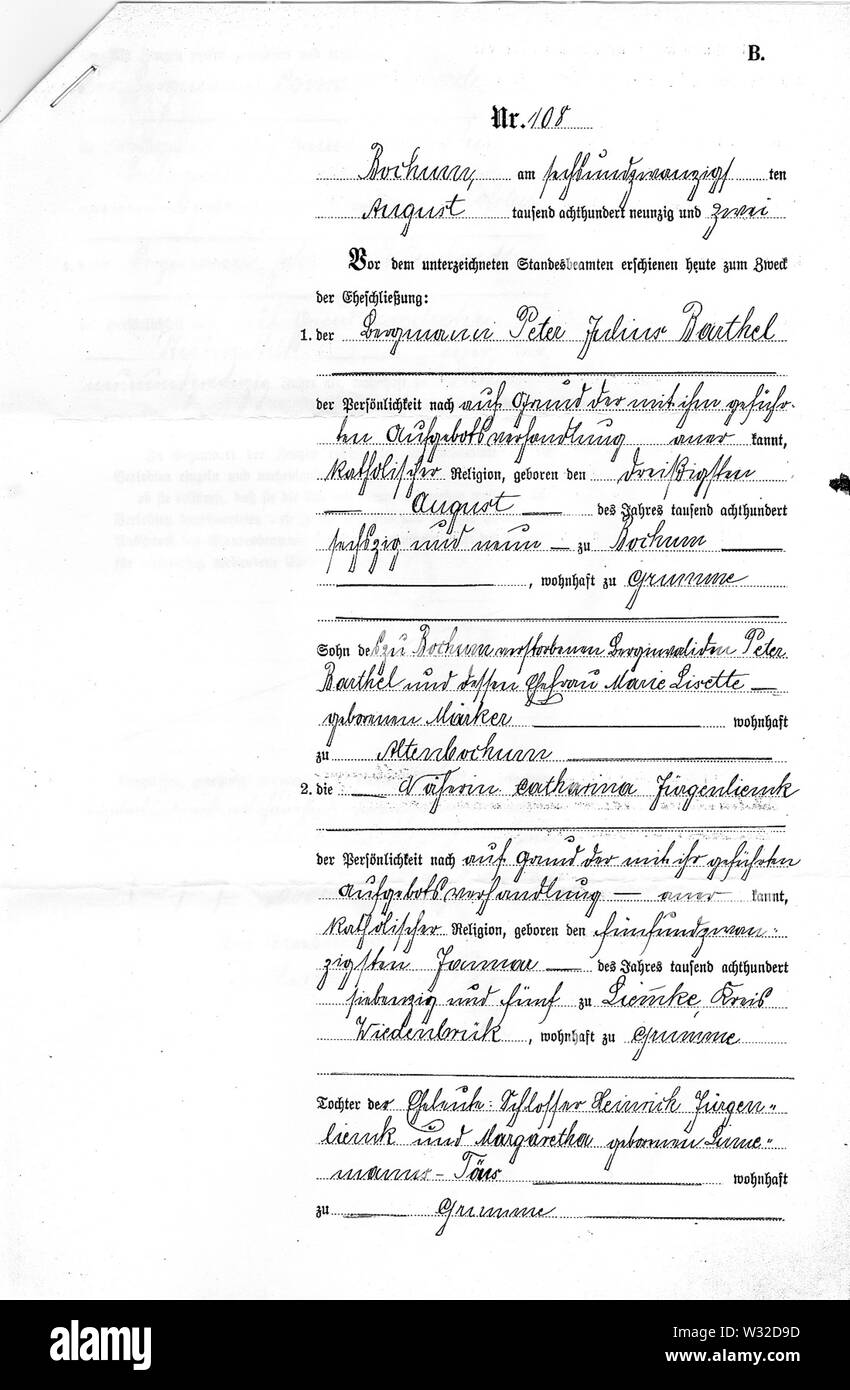 B.
Nr. 108
Bochum, am sechsundzwanzigs ten
August tausend achthundert neunzig und zwei
Vor dem unterzeichneten Standesbeamten erschienen heute zum Zweck
der Eheschließung:
1. der Bergmann Peter Julius Barthel
der Persönlichkeit nach auf Grund der mit ihm geführ-
ten Aufgebotsverhandlung aner kannt,
katholischer Religion, geboren den dreißigsten
August des Jahres tausend achthundert
sechszig und neun zu Bochum
, wohnhaft zu Grumme
Sohn des zu Bochum verstorbenen Berginvaliden Peter
Barthel und dessen Ehefrau Marie Lisette
geborenen Märker wohnhaft
zu Altenbochum
2. die Näherin Catharina Jürgenliemk
der Persönlichkeit nach auf Grund der mit ihr geführten
Aufgebotsverhandlung aner kannt,
katholischer Religion, geboren den fünfundzwan-
zigsten Januar des Jahres tausend achthundert
siebenzig und fünf zu Liemke, Kreis
Wiedenbrück, wohnhaft zu Grumme
Tochter der Eheleute: Schlosser Heinrich Jürgen-
liemk und Margaretha geborenen
wohnhaft
zu Grumme
alamy
Image ID: W32D9D
www.alamy.com